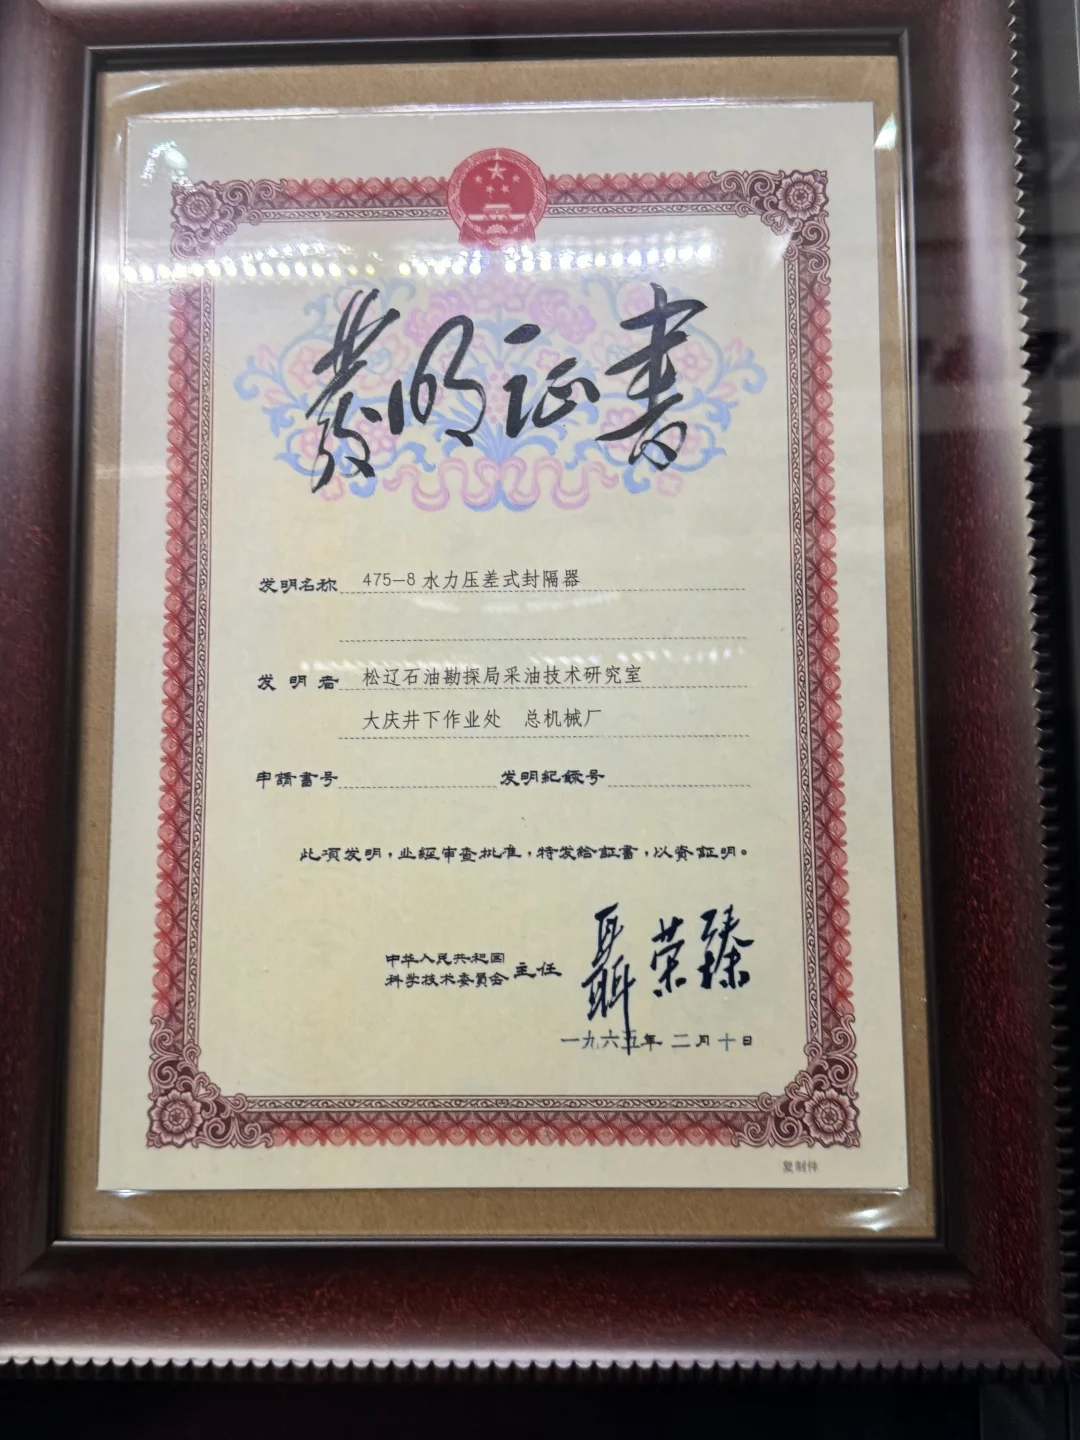 發明证書
发明名称 475-8水力压差式封隔器
发明者 松辽石油勘探局采油技术研究室
大庆井下作业处 总机械厂
申請書号 发明紀録号
此項发明，业經审查批准，特发給証書，以資証明。
中华人民共和国
科学技术委員会 主任 聂荣臻
一九六五年 二月十日
复制件